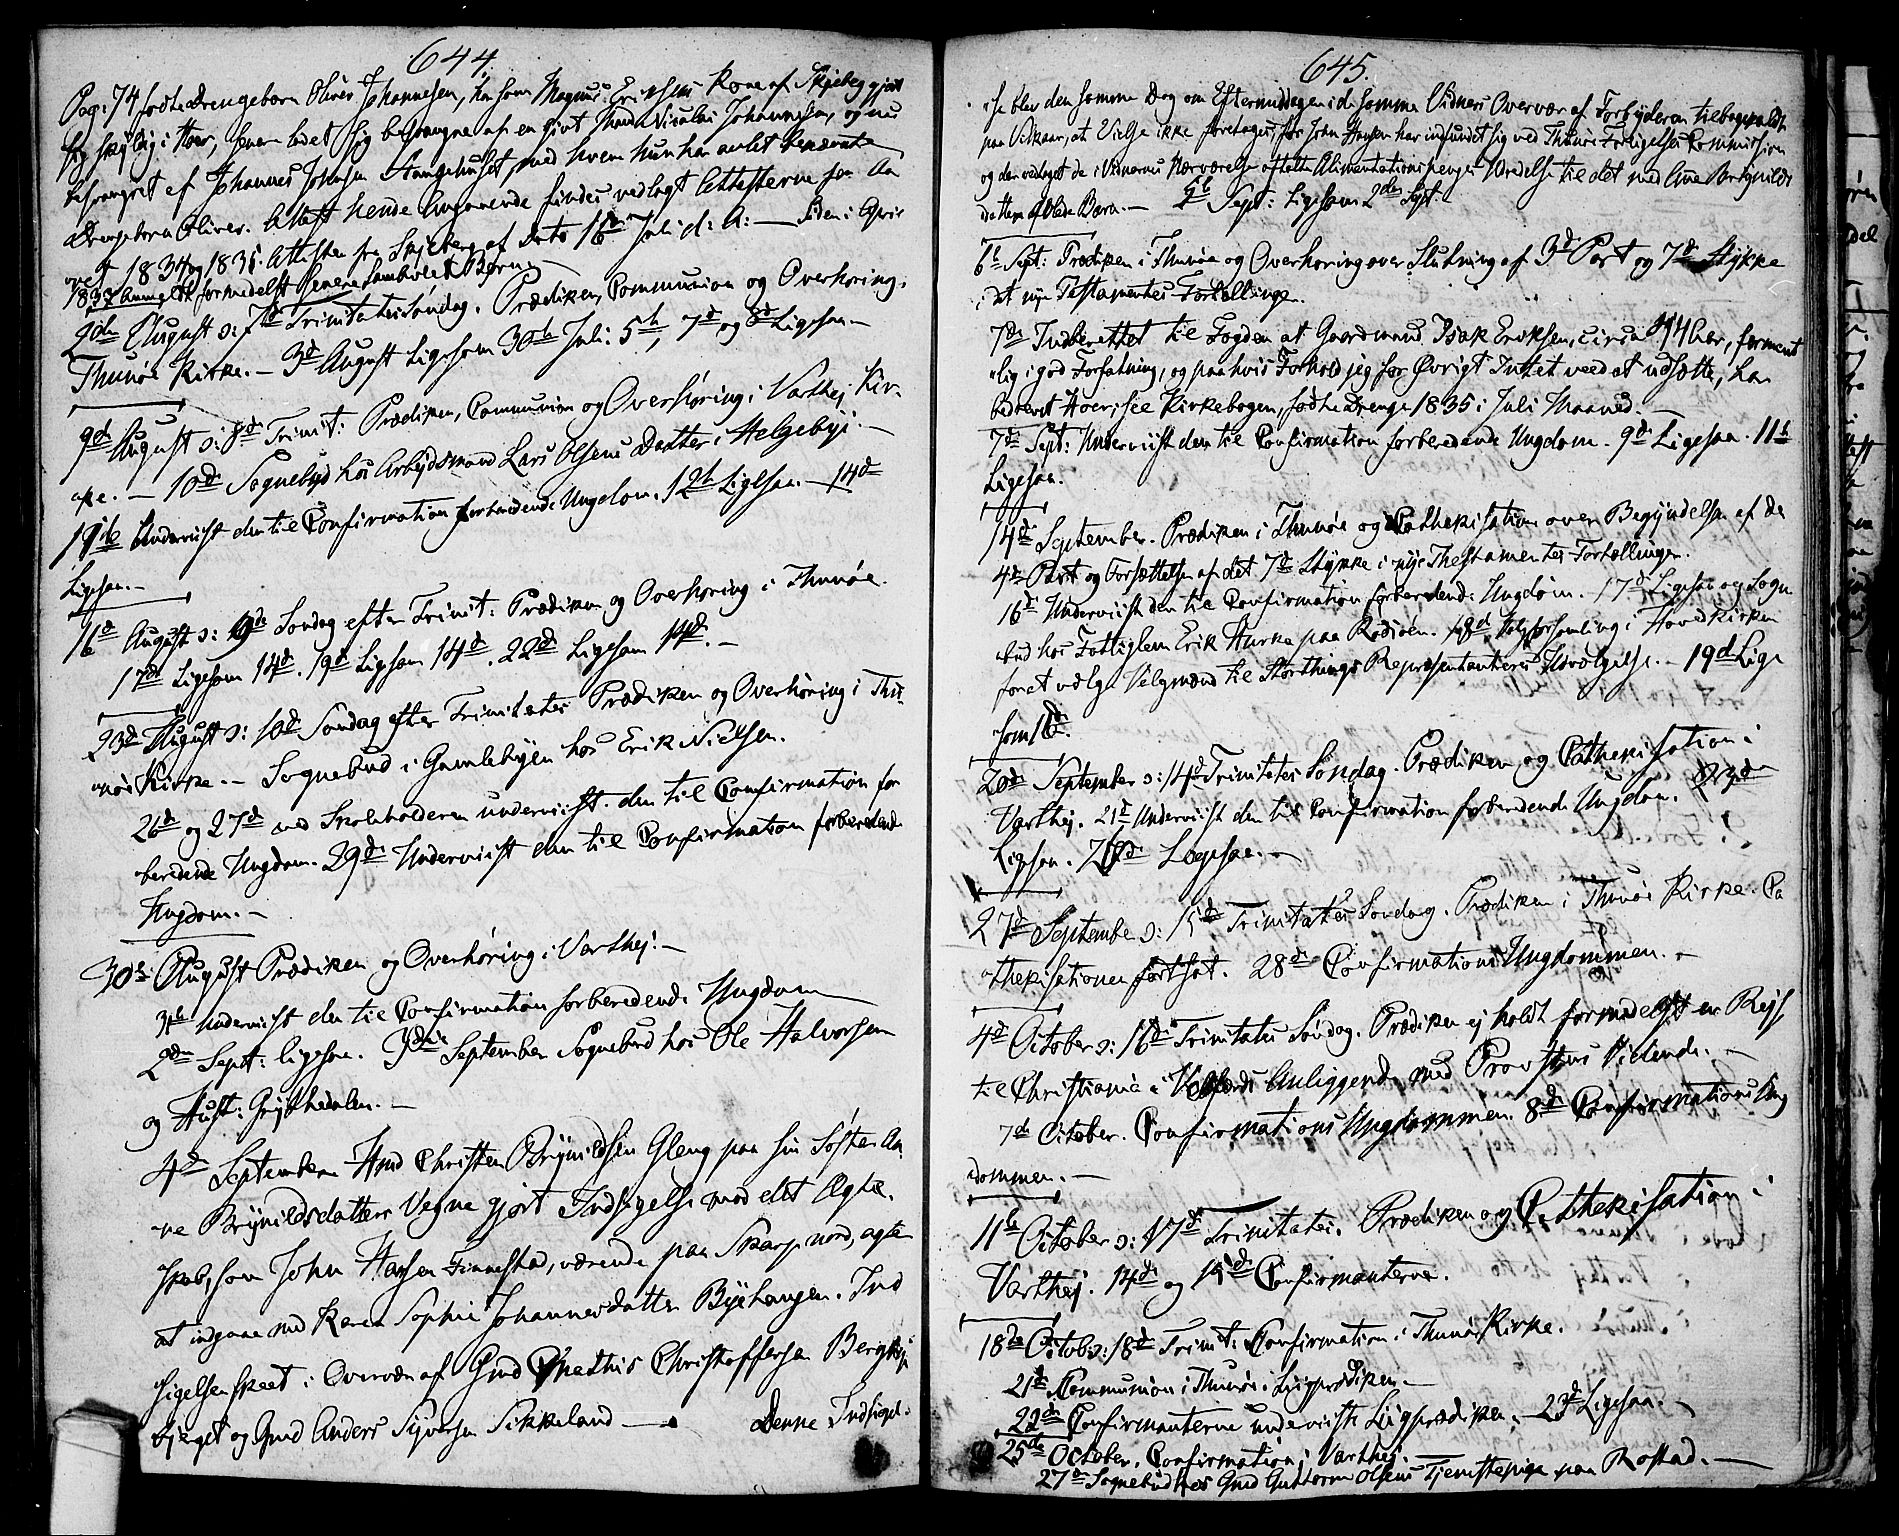 644.
Pag: 74 fødte Drengebarn Olives Johannesen, har som Magnus Eriksens Kone af Skjeberg gjort
sig skyldig i Hoer, senere ladet sig besvangre af en givt Mand Nicolai Johannesen, og nu
besvangret af Johannes Johnsen Stangehuset, med hvem hun har avlet benævnte
Drengebarn Olives. Attest hende angaaende findes vedlagt Attesterne for Aa
ret 1834 og 1835. Attesten fra Skjeberg af Dato 16de Juli d: A: — Siden i April
1838 anmeldt formedelst senere samlede Børn.
2den August ɔ: 7de Trinitatis Søndag. Prædiken, Communion og Overhøring.
Thunøe Kirke. — 3de August Ligesom 30te Juli: 5te, 7de og 8de Ligesaa. —
9de August ɔ: 8de Trinit: Prædiken, Communion og Overhøring i Varthej Kir-
ke. — 10de Sognebud hos Arbejdsmand Lars Olsens Datter i Helgebye. —
11te Underviist den til Confirmation forberedende Ungdom. 12te Ligesaa. — 14de
Ligesaa. —
16de August ɔ: 9de Søndag efter Trinit: Prædiken og Overhøring i Thunøe.
17de Ligesom 14de. 19de Ligesom 14de. 22de Ligesom 14de. —
23de August ɔ: 10de Søndag efter Trinitatis Prædiken og Overhøring i Thu-
nøe Kirke. — Sognebud i Gamlebyen hos Erik Nielsen.
26de og 27de ved Skoleholderen underviist den til Confirmation for
beredende Ungdom. 29de Underviist den til Confirmation forberedende
Ungdom. —
30te August Prædiken og Overhøring i Varthej. —
31te Underviist den til Confirmation forberedende Ungdom
2den Sept: ligesaa. 3die September Sognebud hos Ole Halvorsen
og Hust: Grythedalen. —
4de September Har Christen Brynildsen Gleng paa sin Søster An-
ne Brynildsdatters Vegne gjort Indsigelse mod det Ægte-
skab, som John Hansen Finnestad, værende paa Skarpnord, agter
at indgaae med Karen Sophie Johannesdatter Byehaugen. Ind
sigelsen skeet i Overvær af Gmd Mathis Christoffersen Berg
bjerget og Gmd Anders Syversen Sikkeland — Denne Indsigel-
645.
se blev den samme Dag om Eftermiddagen i de samme Vidners Overvær af Forbyderen tilbagekaldt
paa Vilkaar, at Vielse ikke foretages, før John Hansen har indfundet sig ved Thunøe Forligelses Commission
og der vedtaget de i Vidnernes Nærværelse aftalte Alimentationspenges Udredelse til det med Anne Brynilds
datter avlede Barn. — 5te Sept: Ligesom 2den Sept.
6te Sept: Prædiken i Thunøe og Overhøring over Slutning af 3die Part og 7de Stykke
i det nye Testamentes Fortællinger.
7de Indberettet til Fogden at Gaardmand Isak Eriksen, circa 44 Aar, forment
lig i god Forfatning, og paa hvis Forhold jeg for Øvrigt Intet veed at udsætte, har
bedrevet Hoer, see Kirkebogen, fødte Drenge 1835 i Juli Maaned. —
7de Sept: Underviist den til Confirmation forberedende Ungdom. 9de Ligesaa. 11te
Ligesaa.
14de September. Prædiken i Thunøe og Cathekisation over Begyndelsen af de
4de Part og Forsættelse af det 7de Stykke i nye Thestamentes Fortællinger.
16de Underviist den til Confirmation forberedende Ungdom. 17de Ligesaa og Sogne
bud hos Fattiglem Erik Hurke paa Rødsøen. 18de Valgforsamling i Hovedkirken
foret vælge Valgmænd til Storthings Repræsentanters Udvælgelse. — 19de Lige
som 16de.
20de September ɔ: 14de Trinitatis Søndag. Prædiken og Cathekisation i
Varthej. 21de Underviist den til Confirmation forberedende Ungdom. 23de
Ligesaa. 26de Ligesaa. —
27de September ɔ: 15de Trinitatis Søndag. Prædiken i Thunøe Kirke. Ca
thekisationen fortsat. 28de Confirmations Ungdommen. —
4de October ɔ: 16de Trinitatis Søndag. Prædiken ej holdt formedelst en Rejse
til Christiania i Velfærds Anliggende med Provstens Vidende. —
7de October. Confirmations Ungdommen. 8de Confirmations Ung
dommen. —
11te October ɔ: 17de Trinitatis. Prædiken og Cathekisation i
Varthej. 14de og 15de Confirmanterne.
18de Octob: ɔ: 18de Trinit: Confirmation i Thunøe Kirke.
21de Communion i Thunøe i Ligprædiken. —
22de Confirmanterne underviiste Ligprædiken. 23de Ligesaa. —
25de October. Confirmation i Varthej.
27de Sognebud hos Gmd Guttorm Olsens Tjenestepige paa Rostad. —